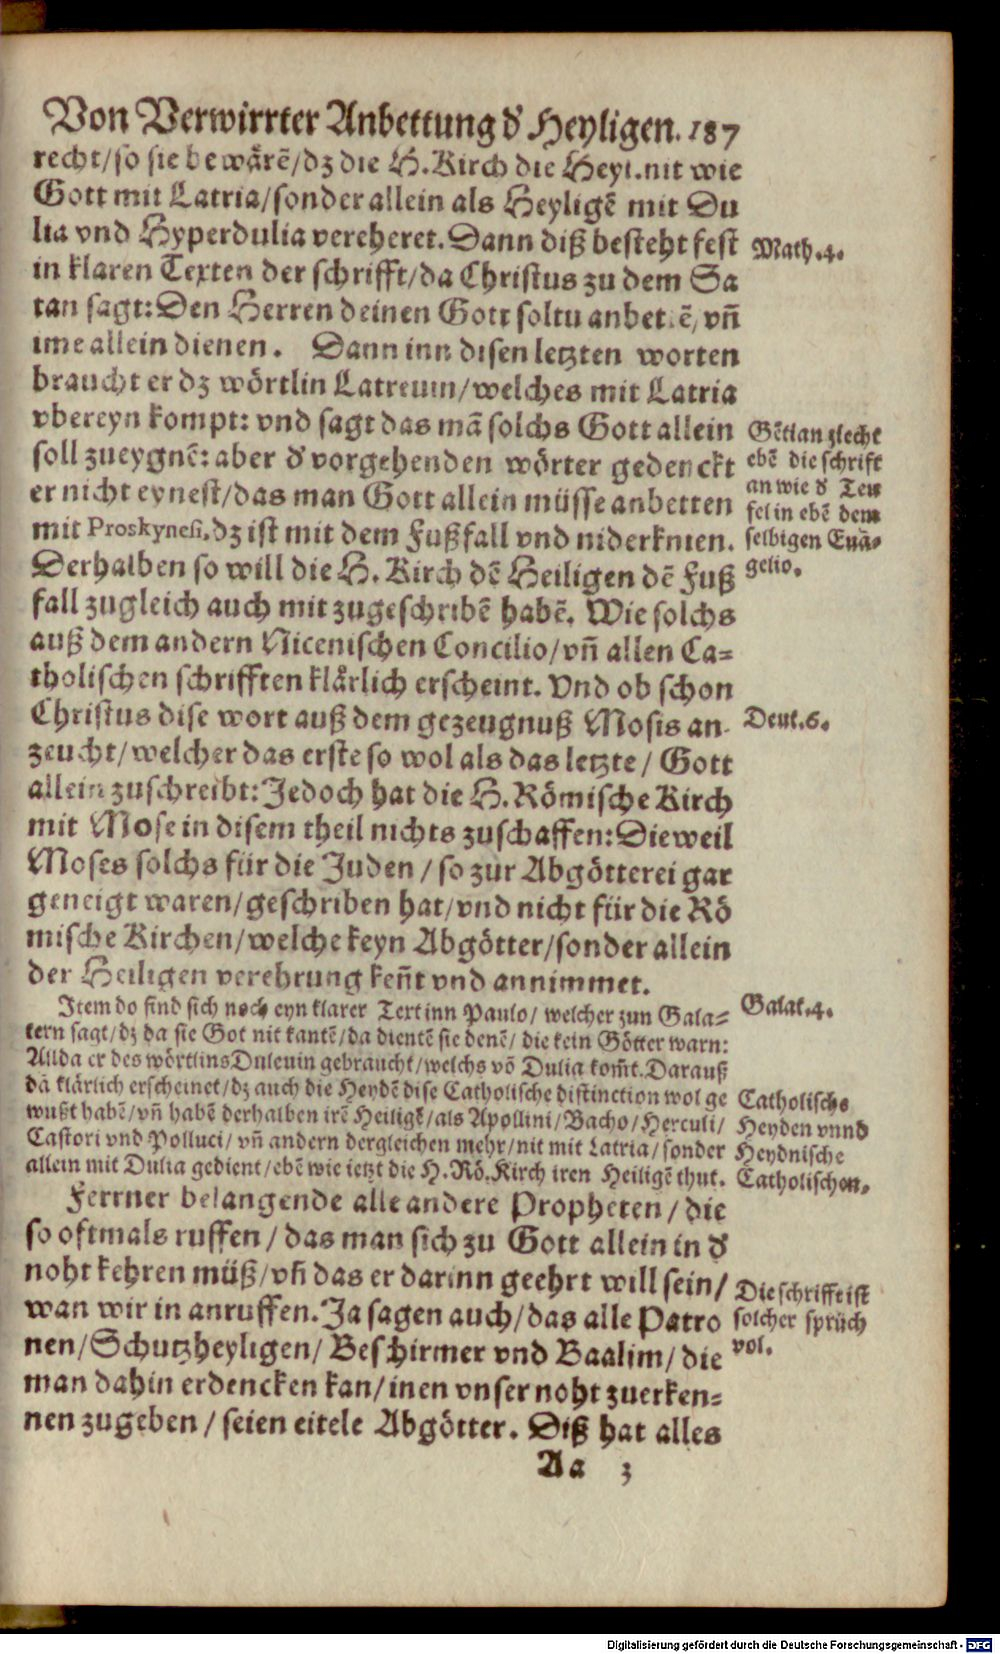 Von Verwirrter Anbettung d' Heyligen. 187
recht/so sie bewårẽ/dz die H. Kirch die Heyl. nit wie
Gott mit Latria/sonder allein als Heyligẽ mit Du
lia vnd Hyperdulia vereheret. Dann diß besteht fest
in klaren Texten der schrifft/da Christus zu dem Sa
tan sagt: Den Herren deinen Gott soltu anbetẽ/vñ
ime allein dienen. Dann inn disen letzten worten
braucht er dz wörtlin Latreuin/welches mit Latria
vbereyn kompt: vnd sagt das mã solchs Gott allein
soll zueygnẽ: aber d' vorgehenden wörter gedenckt
er nicht eynest/das man Gott allein müsse anbetten
mit Proskynesi, dz ist mit dem Fußfall vnd niderknien.
Derhalben so will die H. Kirch dẽ Heiligen dẽ Fuß
fall zugleich auch mit zugeschribẽ habẽ. Wie solchs
auß dem andern Nicenischen Concilio/vñ allen Ca=
tholischen schrifften klårlich erscheint. Vnd ob schon
Christus dise wort auß dem gezeugnuß Mosis an-
zeucht/welcher das erste so wol als das letzte/ Gott
allein zuschreibt: Jedoch hat die H. Römische Kirch
mit Mose in disem theil nichts zuschaffen: Dieweil
Moses solchs für die Juden/so zur Abgötterei gar
geneigt waren/geschriben hat/vnd nicht für die Rö
mische Kirchen/welche keyn Abgötter/sonder allein
der Heiligen verehrung keñt vnd annimmet.
Item do find sich noch eyn klarer Text inn Paulo/ welcher zun Gala=
tern sagt/dz da sie Got nit kantẽ/da dientẽ sie denẽ/ die kein Götter warn:
Allda er des wörtlins Duleuin gebraucht/welchs võ Dulia kom̃t. Darauß
dã klårlich erscheinet/dz auch die Heydẽ dise Catholische distinction wol ge
wußt habẽ/vñ habẽ derhalben irẽ Heiligẽ/als Apollini/Bacho/Herculi/
Castori vnd Polluci/ vñ andern dergleichen mehr/nit mit Latria/sonder
allein mit Dulia gedient/ebẽ wie ietzt die H. Rö. Kirch iren Heiligẽ thut.
Ferrner belangende alle andere Propheten/die
so oftmals ruffen/das man sich zu Gott allein in d'
noht kehren müß/vñ das er darinn geehrt will sein/
wan wir in anruffen. Ja sagen auch/das alle Patro
nen/Schutzheyligen/Beschirmer vnd Baalim/die
man dahin erdencken kan/inen vnser noht zuerken=
nen zugeben/seien eitele Abgötter. Diß hat alles
Aa 3
Math. 4.
Gẽtian zlecht
ebẽ die schrift
an wie d' Teu
fel in ebẽ dem
selbigen Euã=
gelio.
Deut. 6.
Galat. 4.
Catholische
Heyden vnnd
Heydnische
Catholischen.
Die schrifft ist
solcher sprüch
vol.
Digitalisierung gefördert durch die Deutsche Forschungsgemeinschaft - DFG